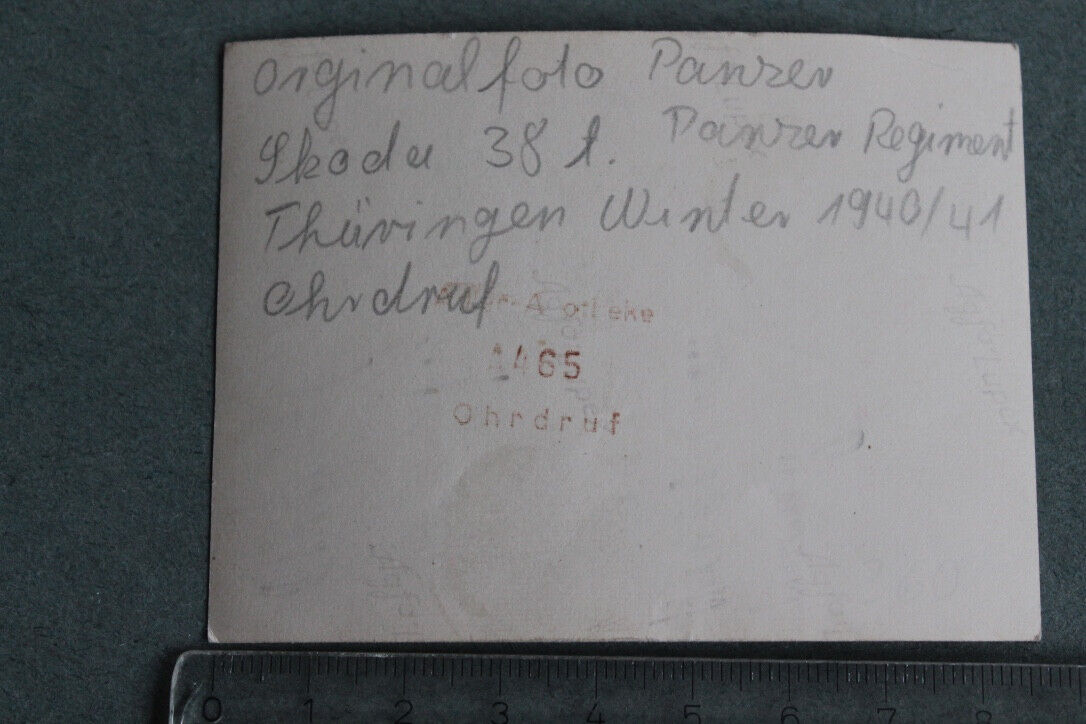 Orginalfoto Panzer
Skoda 38 t. Panzer Regiment
Thüringen Winter 1940/41
Ohrdruf
Apotheke
1465
Ohrdruf
0 1 2 3 4 5 6 7 8